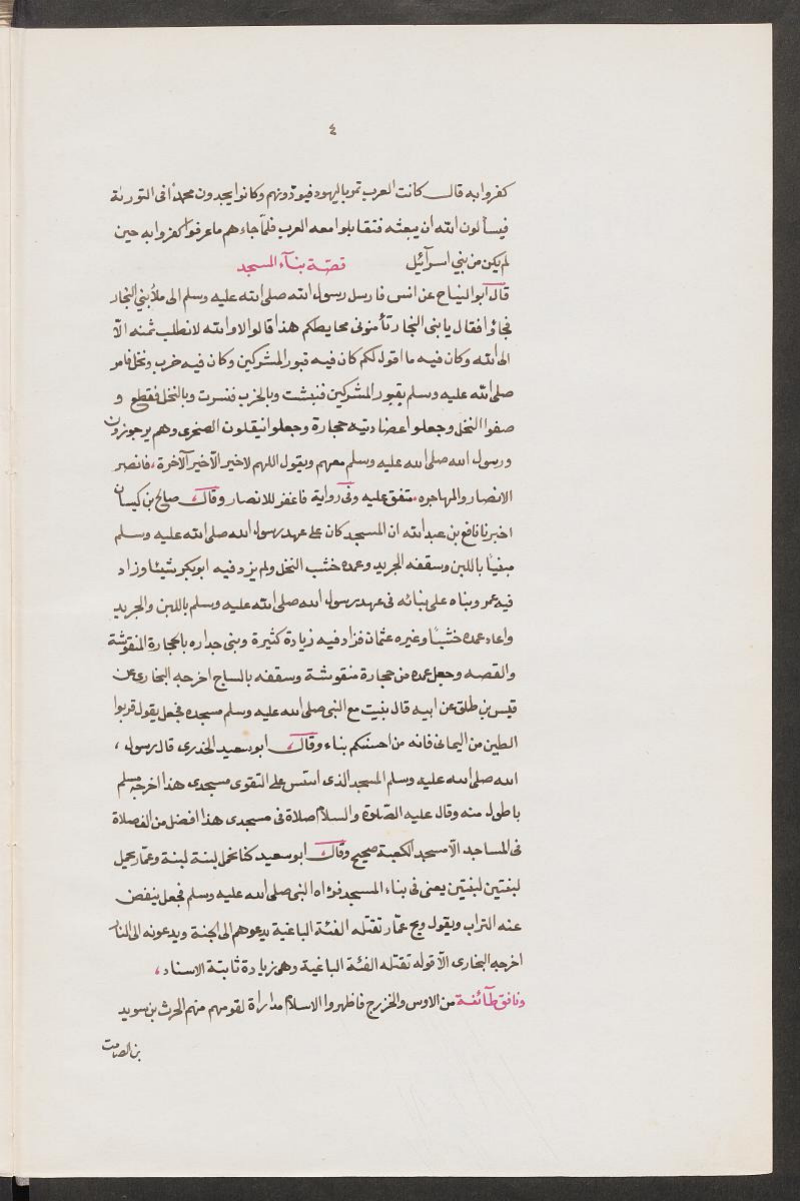 ٤
كفروا به قال كانت العرب تمر باليهود فيوذونهم وكانوا يجدون محمدًا فى التورىة
فيسألون الله ان يبعثه فتقابلوا معه العرب فلمّا جاءهم ماعرفوا كفروا به حين
لم يكن من بني اسرآئيل قصّة بنآء المسجد
قال ابو التياح عن انس فارسل رسول الله صلى الله عليه وسلم الى ملأ بني النجار
فجاؤا فقال يا بنى النجار تأمنونى محايطكم هذا قالوا لا والله لانطلب ثمنه الاّ
الى الله وكان فيه ما اقول لكم كان فيه قبور المشركين وكان فيه خرب ونخل فامر
صلى الله عليه وسلم بقبور المشركين فنبشت وبالخرب فنسرت وبالنخل فقطع و
صفوا النخل وجعلوا عضادتيه حجارة وجعلوا نيقلون الصخرى وهم يرجوزون
ورسول الله صلى الله عليه وسلم معهم ويقول اللهم لاخير الاّ خير الآخرة، فانصر
الانصار والمهاجره، متفق عليه وفى رواية فاغفر للانصار وقال صالح بن كيسان
اخبرنا نافع بن عبدالله ان المسجد كان على عهد رسول الله صلى الله عليه وسلم
مبنيًا باللبن وسقفه الجريد وعمده خشب النخل ولم يزد فيه ابوبكر شيئا وزاد
فيه عمر وبناه على بنائه فى عهد رسول الله صلى الله عليه وسلم باللبن والجريد
واعاد عمده خشبًا وغيره عثمان فزاد فيه زيادة كثيرة وبنى جداره بالحجارة المنقوشة
والقصه وجعل عمده من حجارة منقوشة وسقفه بالساج اخرجه البخارى عن
قيس بن طلق عن ابيه قال بنيت مع النبى صلى الله عليه وسلم مسجده فجعل يقول قربوا
الطين من اليمانى فانه من احسنكم بناء وقال ابو سعيد الخدرى قال رسول ،
الله صلى الله عليه وسلم المسجد الذى اسّس على التقوى مسجدى هذا اخرجه مسلم
باطول منه وقال عليه الصّلوة والسلام صلاة فى مسجدى هذا افضل من الف صلاة
فى المساجد الاّ مسجد الكعبة صحيح وقال ابو سعيد كنا نحمل لبنة لبنة وعمّار يحمل
لبنتين لبنتين يعنى فى بناء المسجد فرؤاه النبى صلى الله عليه وسلم فجعل ينفض
عنه التراب ويقول ويح عمّار تقتله الفئة الباغية يدعوهم الى الجنة ويدعونه الى النار
اخرجه البخارى الاّ قوله تقتله الفئة الباغية وهى زيادة ثابتة الاسناد ،
ونافق طآئفة من الاوس والخزرج فاظهروا الاسلام مداراة لقومهم منهم الحرث بن سويد
بن الصامت